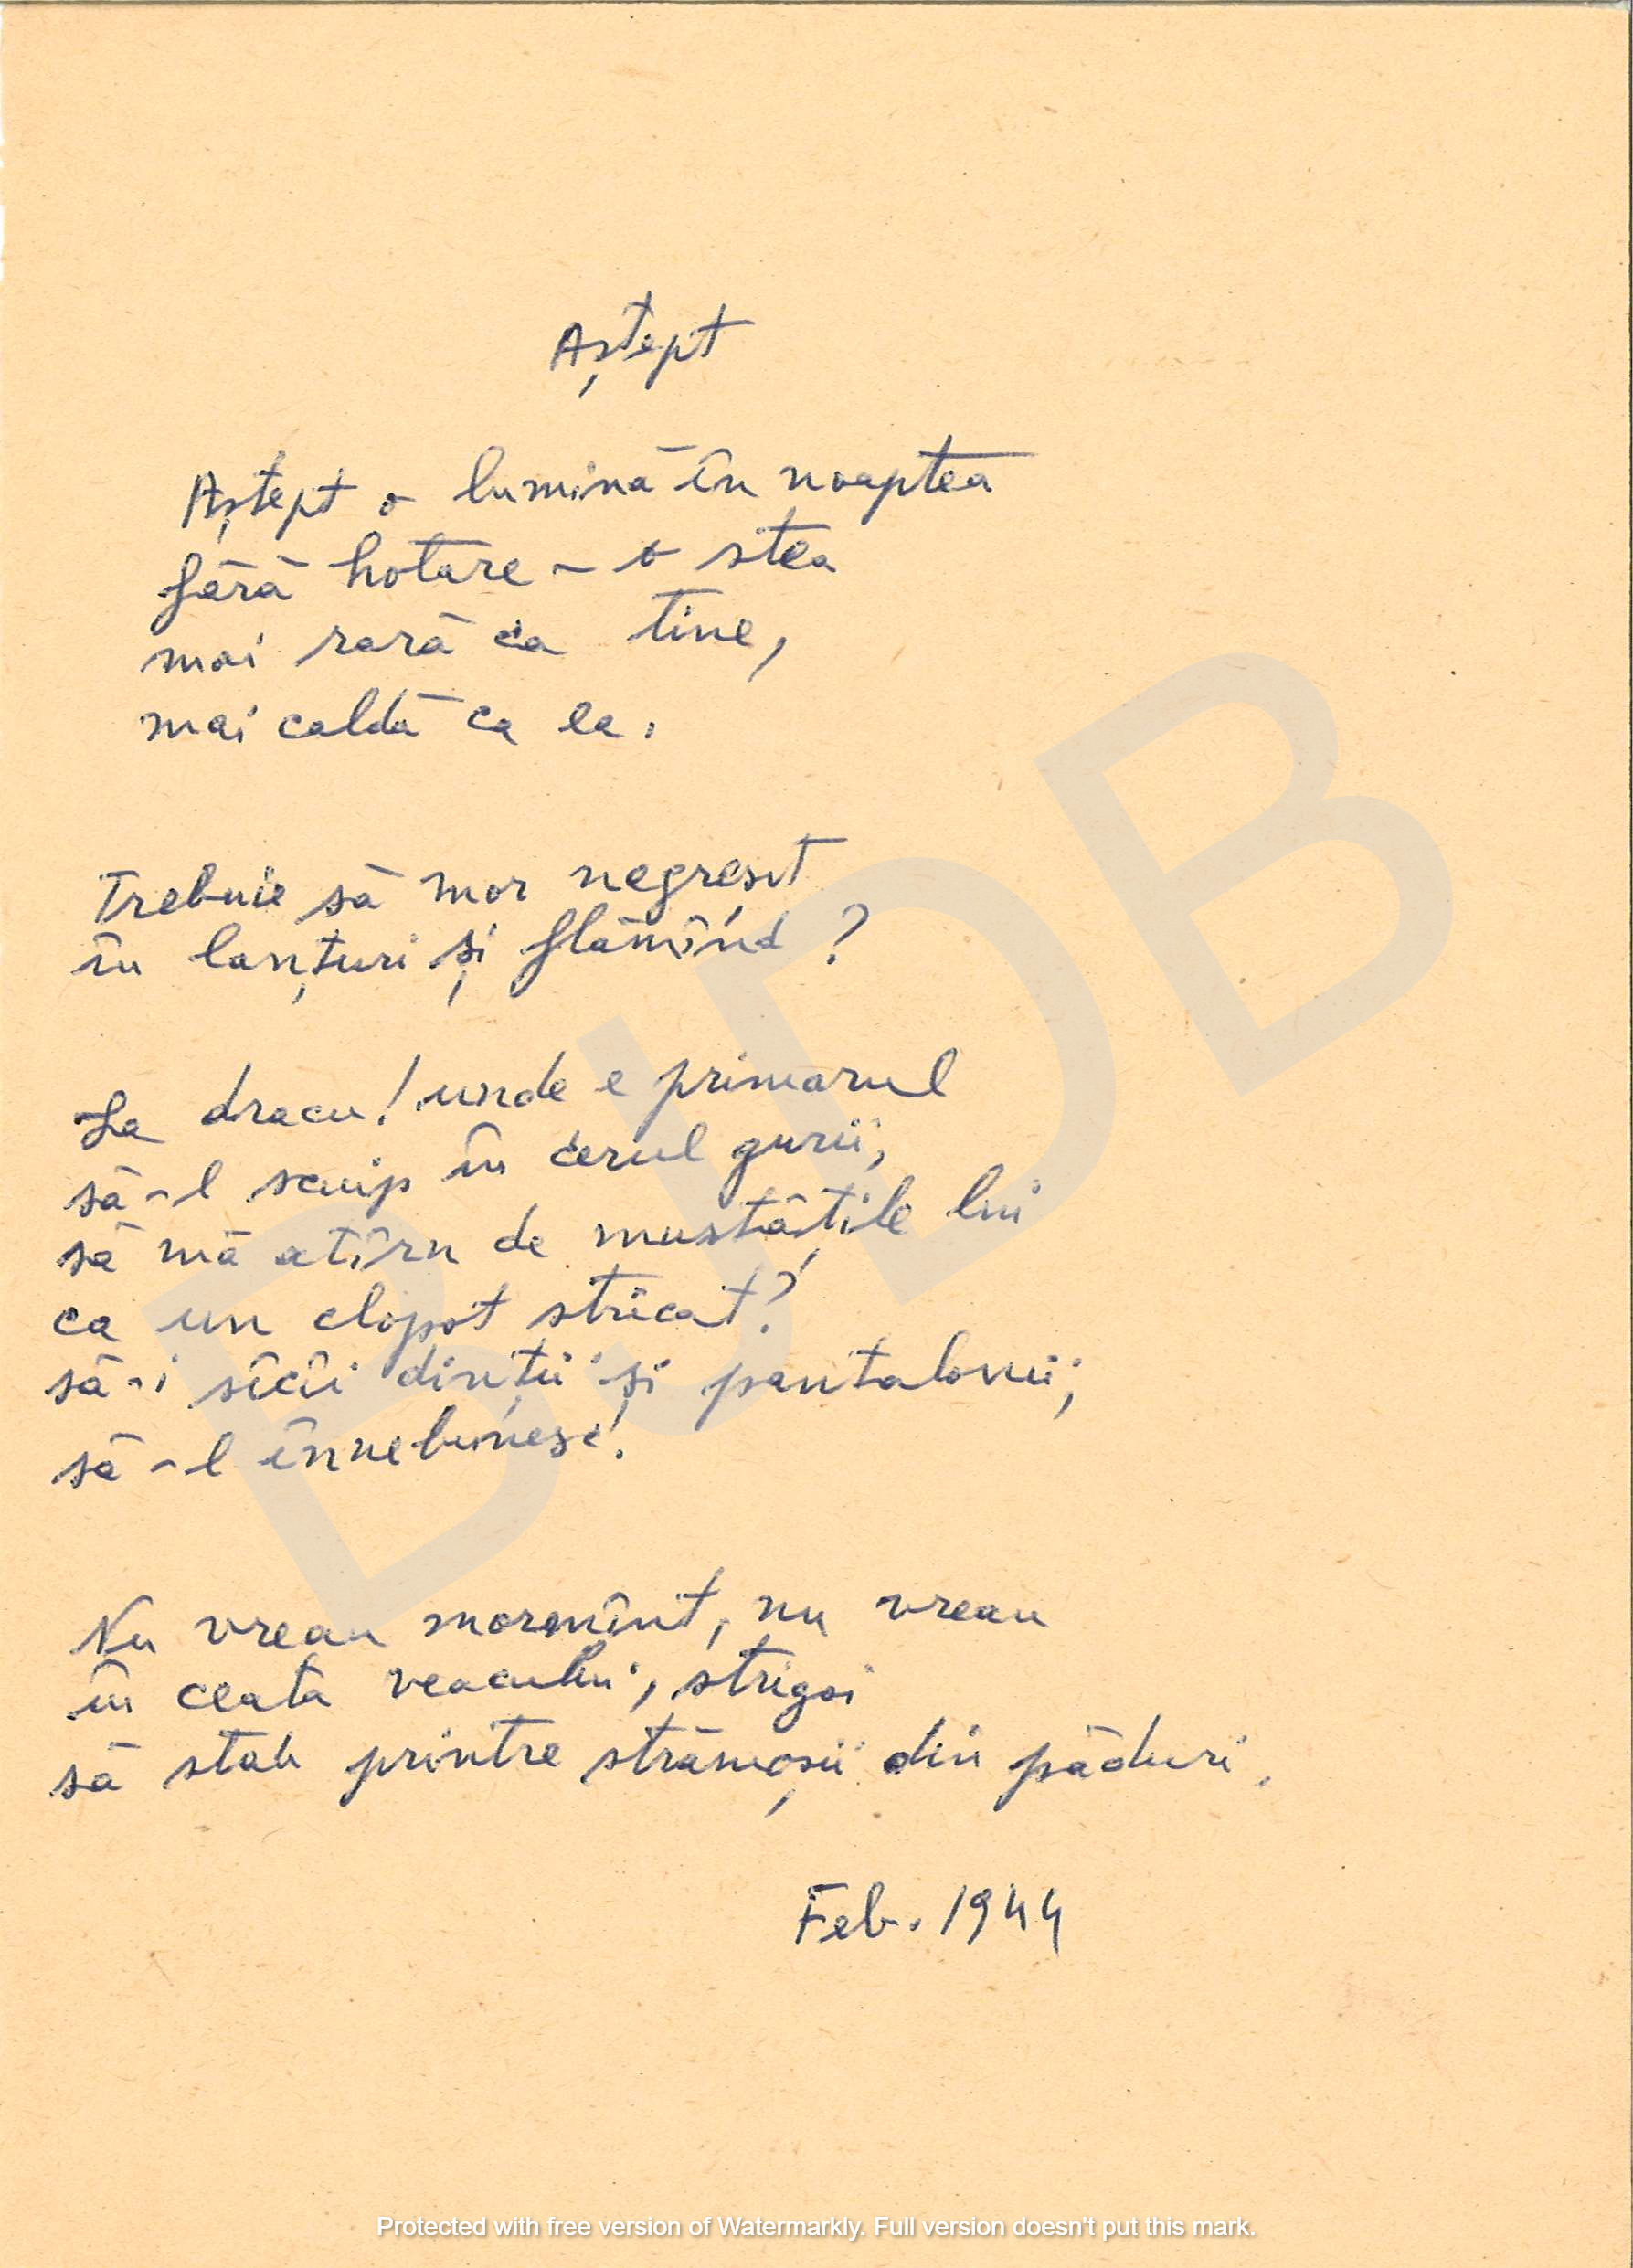 Aștept
Aștept o lumină în noaptea
fără hotare – o stea
mai rară ca tine,
mai caldă ca ea.
Trebuie să mor negreșit
în lanțuri și flămînd ?
La dracu! unde e primarul
să-l scuip în cerul gurii,
să mă atîrn de mustățile lui
ca un clopot stricat?
să-i sîcîi dinții și pantalonii,
să-l înnebunesc!
Nu vreau mormînt, nu vreau
în ceata veacului, strigoi
să stau printre strămoșii din păduri.
Feb. 1944
BJDB
Protected with free version of Watermarkly. Full version doesn't put this mark.